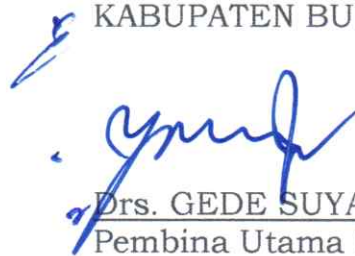 KABUPATEN BU
Drs. GEDE SUYA
Pembina Utama